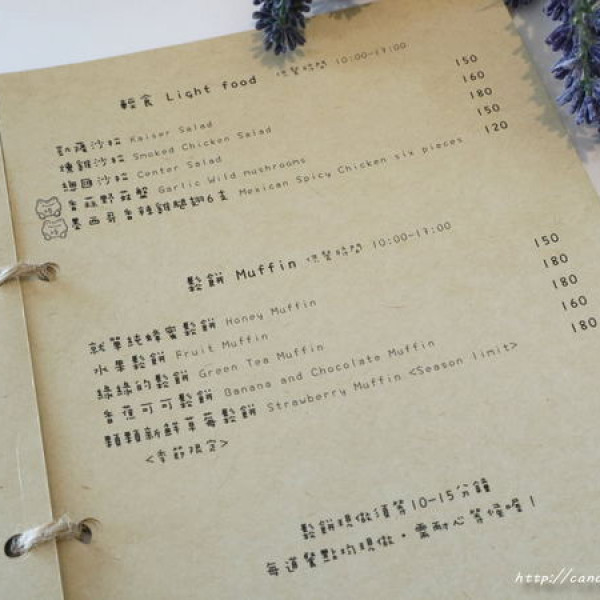 輕食 Light food 供餐時間 10:00-17:00
凱薩沙拉 Kaiser Salad 150
燻雞沙拉 Smoked Chicken Salad 160
總匯沙拉 Center Salad 180
香蒜野菇盤 Garlic Wild mushrooms 150
墨西哥香辣雞腿翅6支 Mexican Spicy Chicken six pieces 120
鬆餅 Muffin 供餐時間 10:00-17:00
就單純蜂蜜鬆餅 Honey Muffin 150
水果鬆餅 Fruit Muffin 180
綠綠的鬆餅 Green Tea Muffin 180
香蕉可可鬆餅 Banana and Chocolate Muffin 160
顆顆新鮮草莓鬆餅 Strawberry Muffin <Season limit> 180
<季節限定>
鬆餅現做須等10-15分鐘
每道餐點均現做。需耐心等候喔!
http://canc